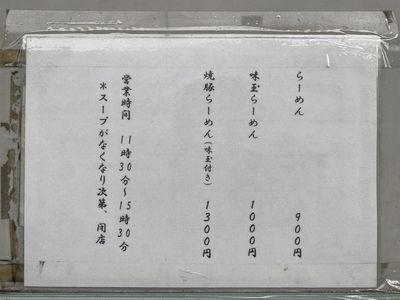 らーめん 900円
味玉らーめん 1000円
焼豚らーめん(味玉付き) 1300円
営業時間 11時30分～15時30分
＊スープがなくなり次第、閉店